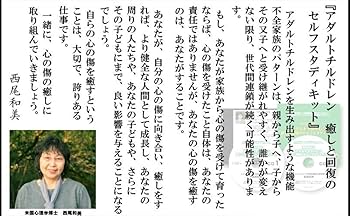 『アダルトチルドレン 癒しと回復の
セルフスタディキット』
アダルトチルドレンを生み出すような機能
不全家族のパターンは、親から子へ、子から
その又子へと受け継がれやすく、誰かが変え
ない限り、世代間連鎖が続く可能性がありま
す。
もし、あなたが家族から心の傷を受けて育った
ならば、心の傷を受けたこと自体は、あなたの
責任ではありませんが、あなたの心の傷を癒す
のは、あなたがすることです。
あなたが、自分の心の傷に向き合い、癒しをす
れば、より健全な人間として成長し、あなたの
周りの人たちや、あなたの子どもや、さらに
その子どもにまで、良い影響を与えることになる
自らの心の傷を癒すという
ことは、大切で、誇りある
仕事です。
一緒に、心の傷の癒しに
取り組んでいきましょう。
西尾和美
米国心理学博士 西尾和美